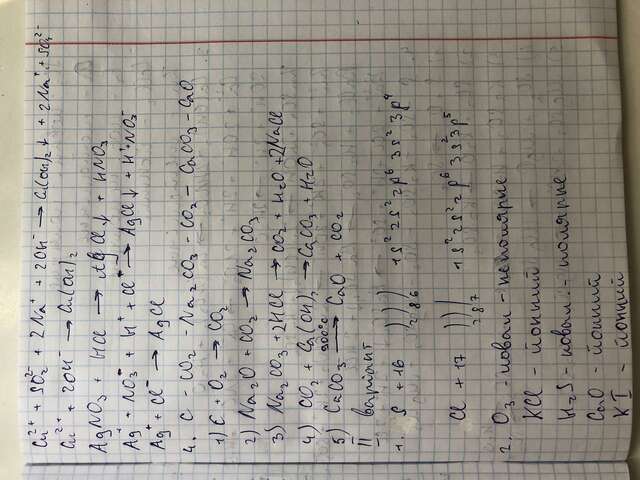 Cu²⁺ + SO₄²⁻ + 2Na⁺ + 2OH⁻ → Cu(OH)₂↓ + 2Na⁺ + SO₄²⁻
Cu²⁺ + 2OH⁻ → Cu(OH)₂
AgNO₃ + HCl → AgCl↓ + HNO₃
Ag⁺ + NO₃⁻ + H⁺ + Cl⁻ → AgCl↓ + H⁺ + NO₃⁻
Ag⁺ + Cl⁻ → AgCl
4. C - CO₂ - Na₂CO₃ - CO₂ - CaCO₃ - CaO
1) C + O₂ → CO₂
2) Na₂O + CO₂ → Na₂CO₃
3) Na₂CO₃ + 2HCl → CO₂ + H₂O + 2NaCl
4) CO₂ + Ca(OH)₂ → CaCO₃ + H₂O
5) CaCO₃ 900°C → CaO + CO₂
II варіант
1. S + 16 ) ) ) 1s² 2s² 2p⁶ 3s² 3p⁴
2 8 6
Cl + 17 ) ) ) 1s² 2s² 2p⁶ 3s² 3p⁵
2 8 7
2. O₃ - ковал - неполярне
KCl - йонний
H₂S - ковал. - полярне
CaO - йонний
KI - йонний